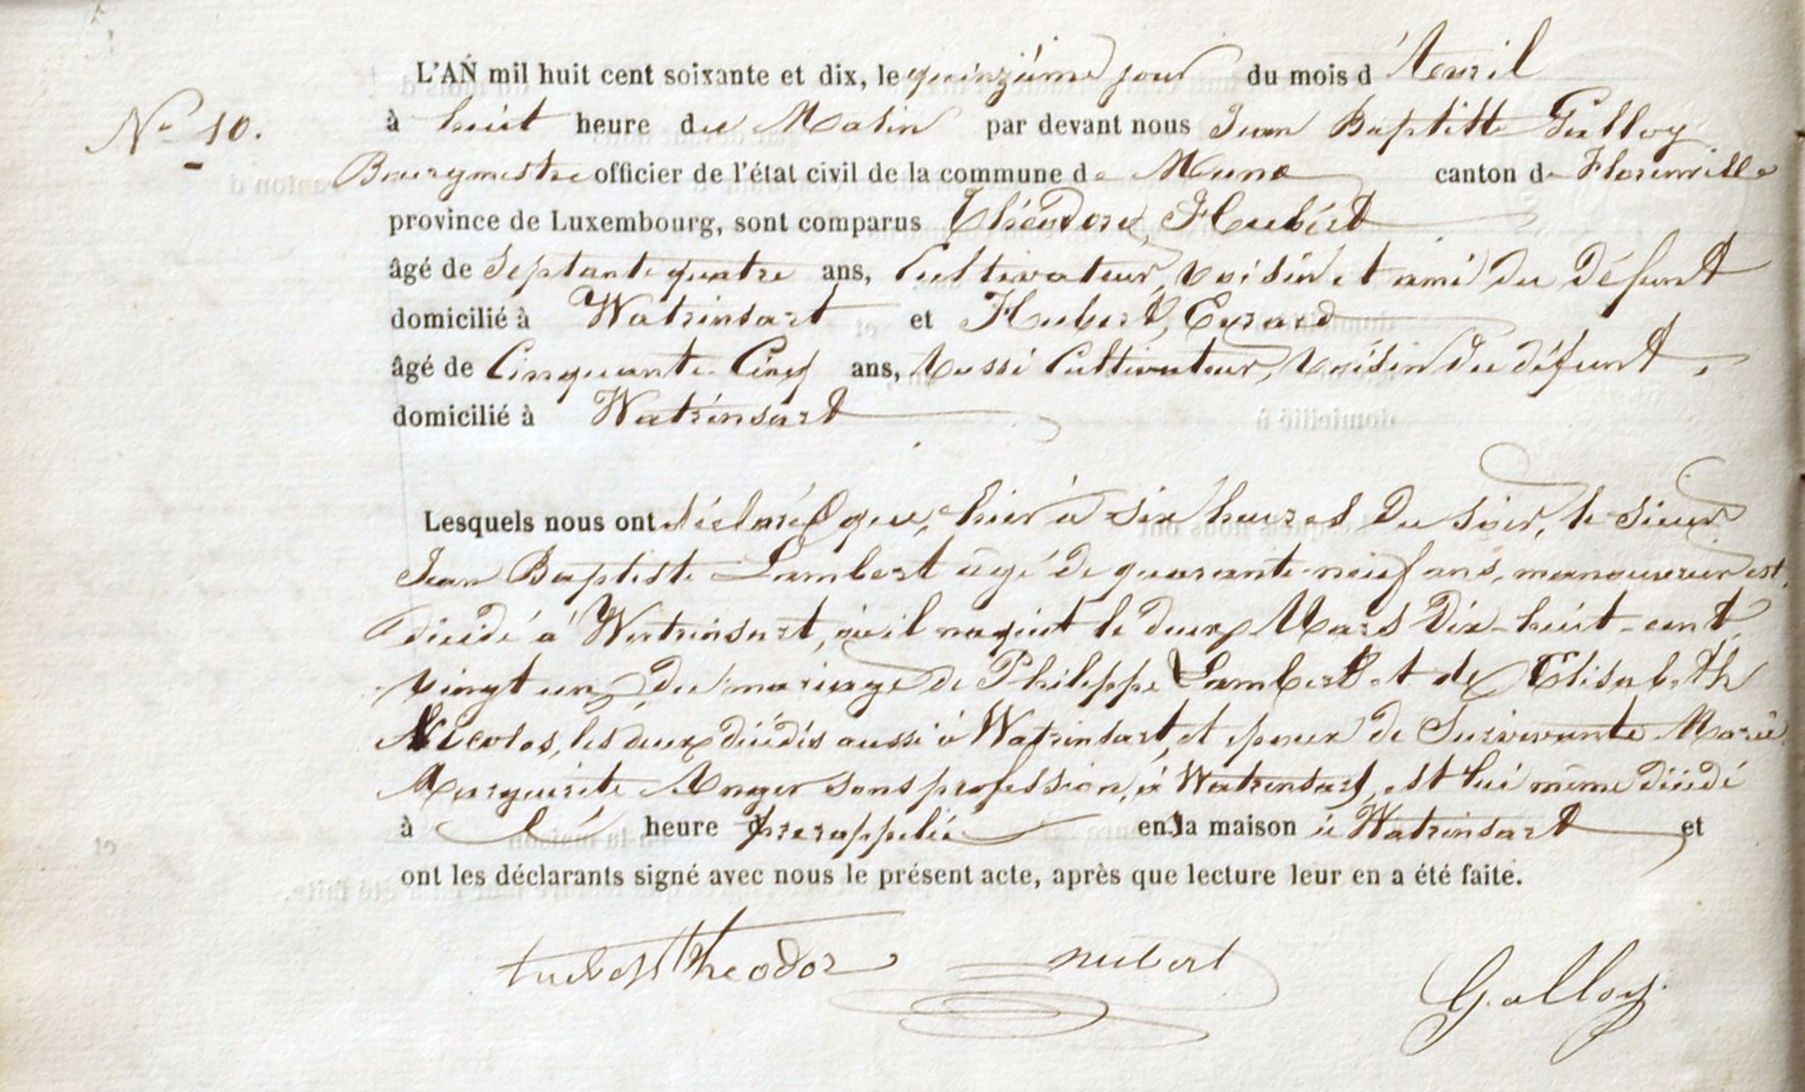 L'AN mil huit cent soixante et dix, le quinzième jour du mois d'Avril
N° 10.
à huit heure du Matin par devant nous Jean Baptiste Galloy
Bourgmestre officier de l'état civil de la commune de Muno canton de Florenville
province de Luxembourg, sont comparus Théodore, Hubert
âgé de Septante quatre ans, Cultivateur, voisin et ami du défunt
domicilié à Watrinsart et Hubert, Evrard
âgé de Cinquante Cinq ans, Aussi Cultivateur, voisin du défunt,
domicilié à Watrinsart
Lesquels nous ont déclaré que, hier à six heures du soir, le sieur
Jean Baptiste Lambert âgé de quarante-neuf ans, manouvrier est
décédé à Watrinsart, où il naquit le deux Mars dix-huit-cent
vingt un, du mariage de Philippe Lambert et de Elisabeth
Nicolas, les deux décédés aussi à Watrinsart, et époux de Survivante Marie
Marguerite Anger sans profession, à Watrinsart, est lui même décédé
à l' heure prérappelée en la maison à Watrinsart et
ont les déclarants signé avec nous le présent acte, après que lecture leur en a été faite.
Theodor hubert Galloy